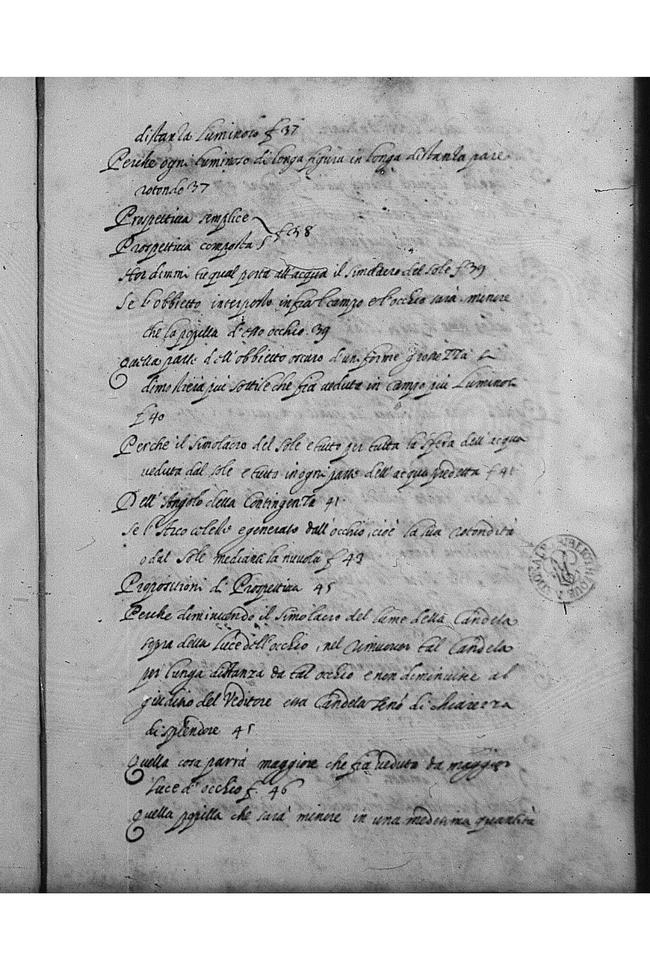 distanza luminoso f 37
Perche ogni luminoso di longa figura in longa distanza pare
rotondo 37
Prospettiva semplice
Prospettiva composta f 38
Hor dimmi tu qual porta all'acqua il simolacro del sole f 39
Se l'obbietto interposto infra 'l campo e l'occhio sarà minore
che la popilla d'esso occhio 39
Quella parte dell'obbietto oscuro d'un forme grossezza
dimostrera piu sottile che fia veduta in campo piu luminoso
f 40
Perche il simolacro del sole e tutto per tutta la sfera dell'acqua
veduta dal sole e tutto in ogni parte dell'acqua predetta f 41
Dell'Angolo della Contingenza 41
Se l'Arco celeste e generato dall'occhio, cioè la sua rotondità
o dal Sole mediante la nuvola f 43
Propositioni di Prospettiva 45
Perche diminuendo il simolacro del lume della Candela
sopra della luce dell'occhio, nel rimuover tal Candela
per lunga distanza da tal occhio e non diminuisce al
giuditio del Veditore essa Candela senò di chiarezza
di splendore 45
Quella cosa parrà maggiore che fia veduta da maggior
luce d'occhio f. 46
Quella popilla che sarà minore in una medesima quantità